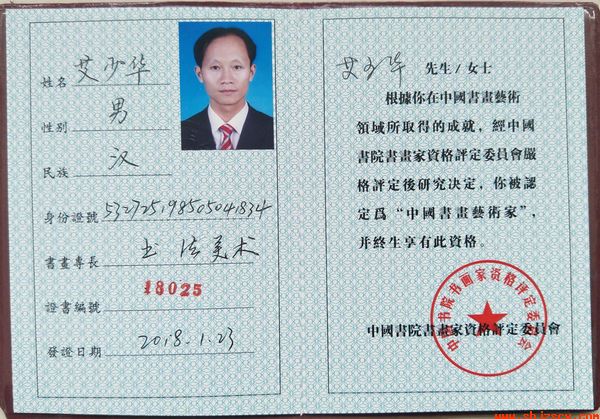 姓名 艾少华
性别 男
民族 汉
身份證號 532725198505041834
書畫專長 书法美术
證書編號 18025
發證日期 2018.1.23
艾少华 先生/女士
根據你在中國書畫藝術
領域所取得的成就，經中國
書院書畫家資格評定委員會嚴
格評定後研究決定，你被認
定爲“中國書畫藝術家”，
并終生享有此資格。
中國書院書畫家資格評定委員會
中国书院书画家资格评定委员会